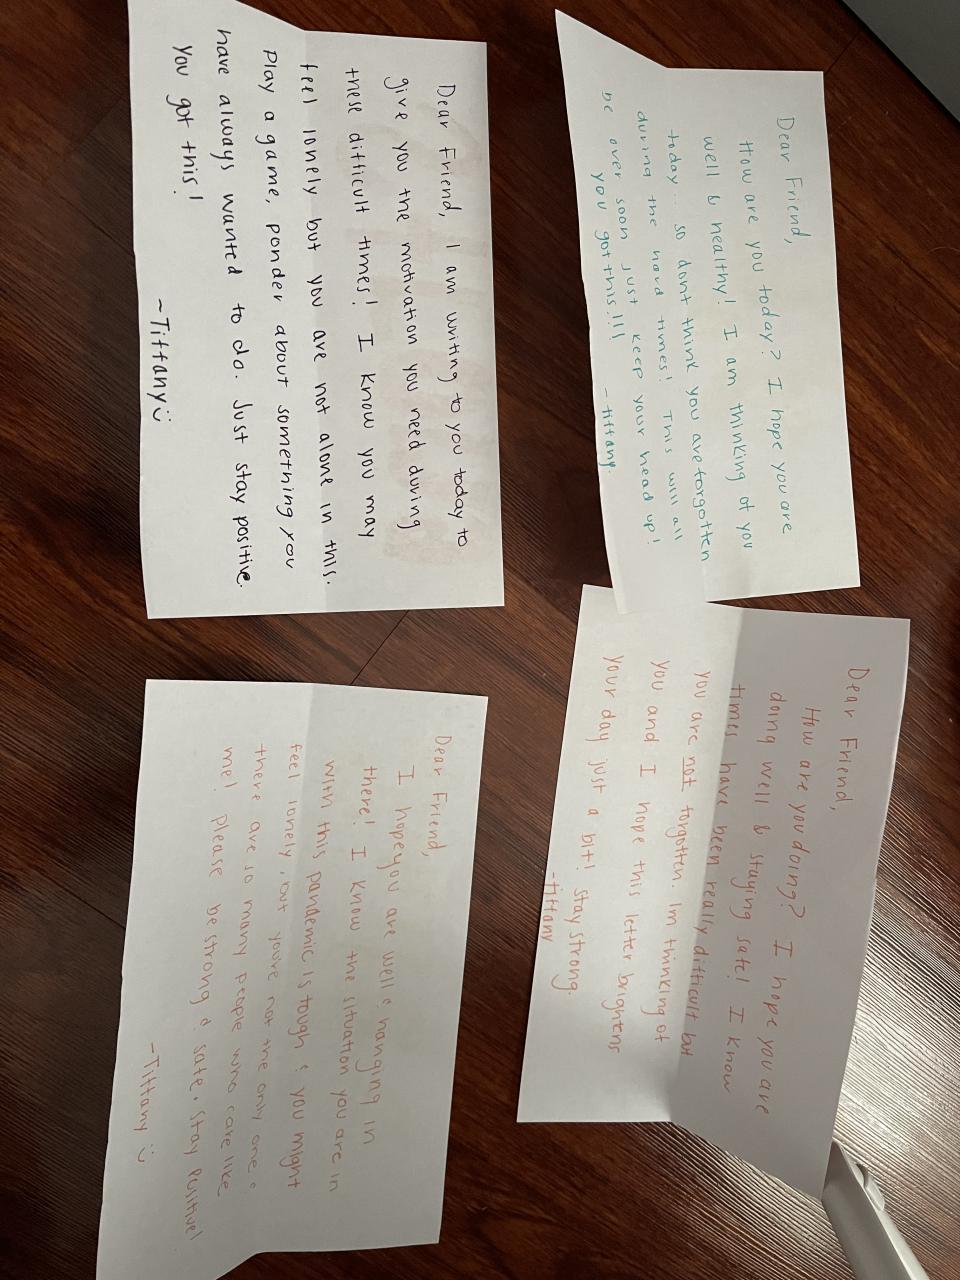 Dear Friend,
How are you today? I hope you are
well & healthy! I am thinking of you
today... so dont think you are forgotten
during the hard times! This will all
be over soon just keep your head up!
you got this!!!
- Tiffany.
Dear Friend,
How are you doing? I hope you are
doing well & staying safe! I know
times have been really difficult but
you are not forgotten. Im thinking of
you and I hope this letter brightens
your day just a bit! stay strong.
-Tiffany
Dear Friend, I am writing to you today to
give you the motivation you need during
these difficult times! I know you may
feel lonely but you are not alone in this.
Play a game, ponder about something you
have always wanted to do. Just stay positive.
you got this!
~Tiffany ü
Dear Friend,
I hope you are well & hanging in
there! I know the situation you are in
with this pandemic is tough & you might
feel lonely, but youre not the only one &
there are so many people who care like
me! please be strong & safe. Stay Positive!
-Tiffany ü